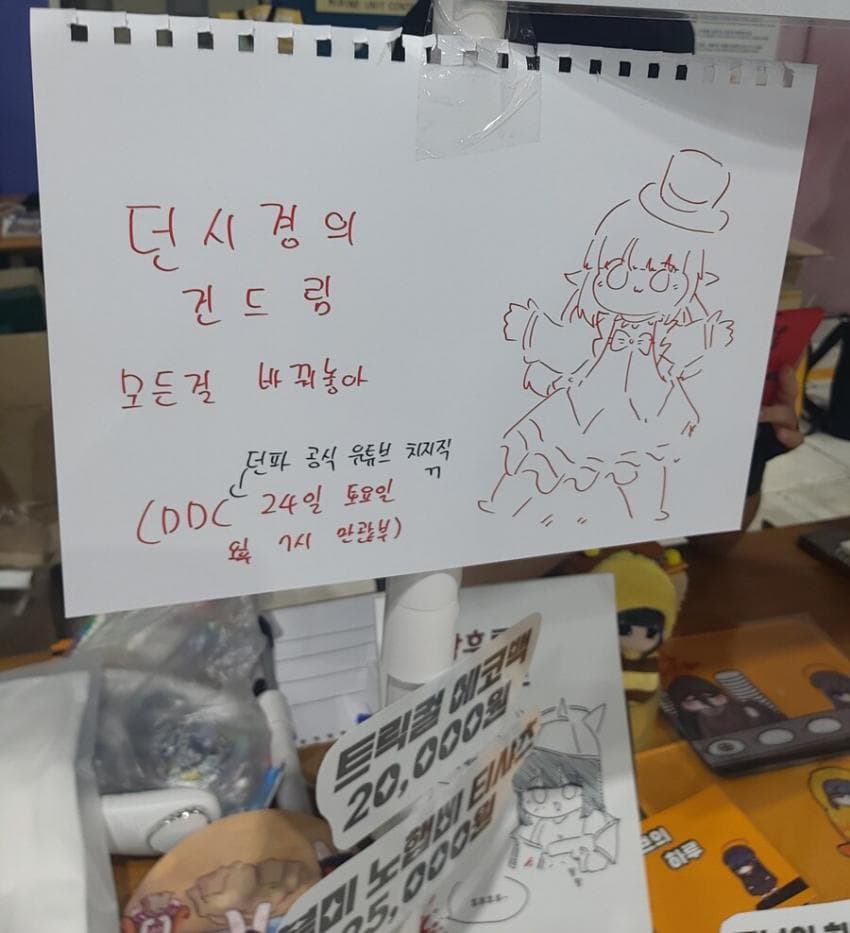 던시경의
건드림
모든걸 바꿔놓아
던파 공식 유튜브 치지직
(DDC 24일 토요일
7시 만관부)
트릭컬 에코백
20,000원
티셔츠
25,000원
하루